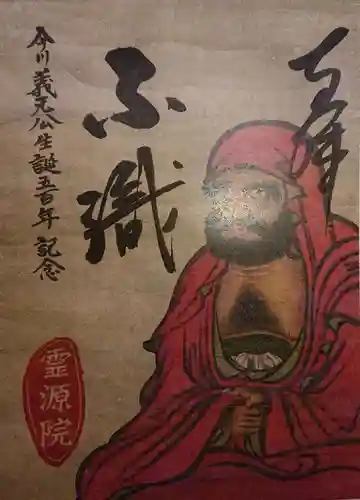 奉拝
不識
今川義元公生誕五百年記念
霊源院